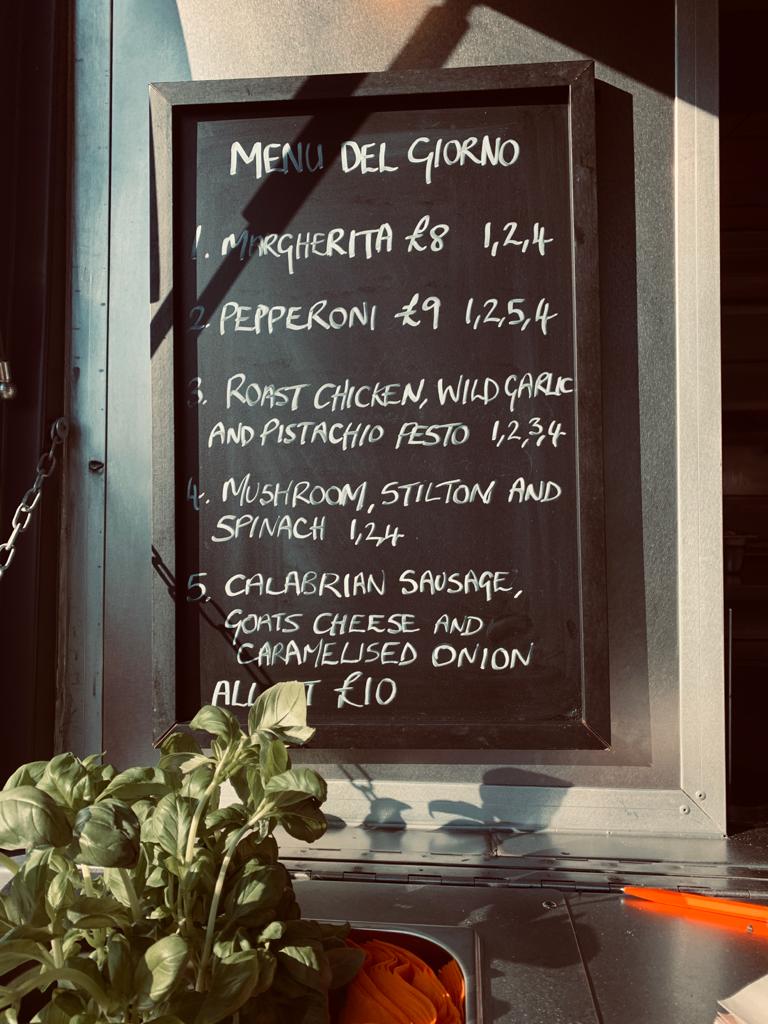 MENU DEL GIORNO
1. MARGHERITA £8 1,2,4
2. PEPPERONI £9 1,2,5,4
3. ROAST CHICKEN, WILD GARLIC
AND PISTACHIO PESTO 1,2,3,4
4. MUSHROOM, STILTON AND
SPINACH 1,2,4
5. CALABRIAN SAUSAGE,
GOATS CHEESE AND
CARAMELISED ONION
ALL £10